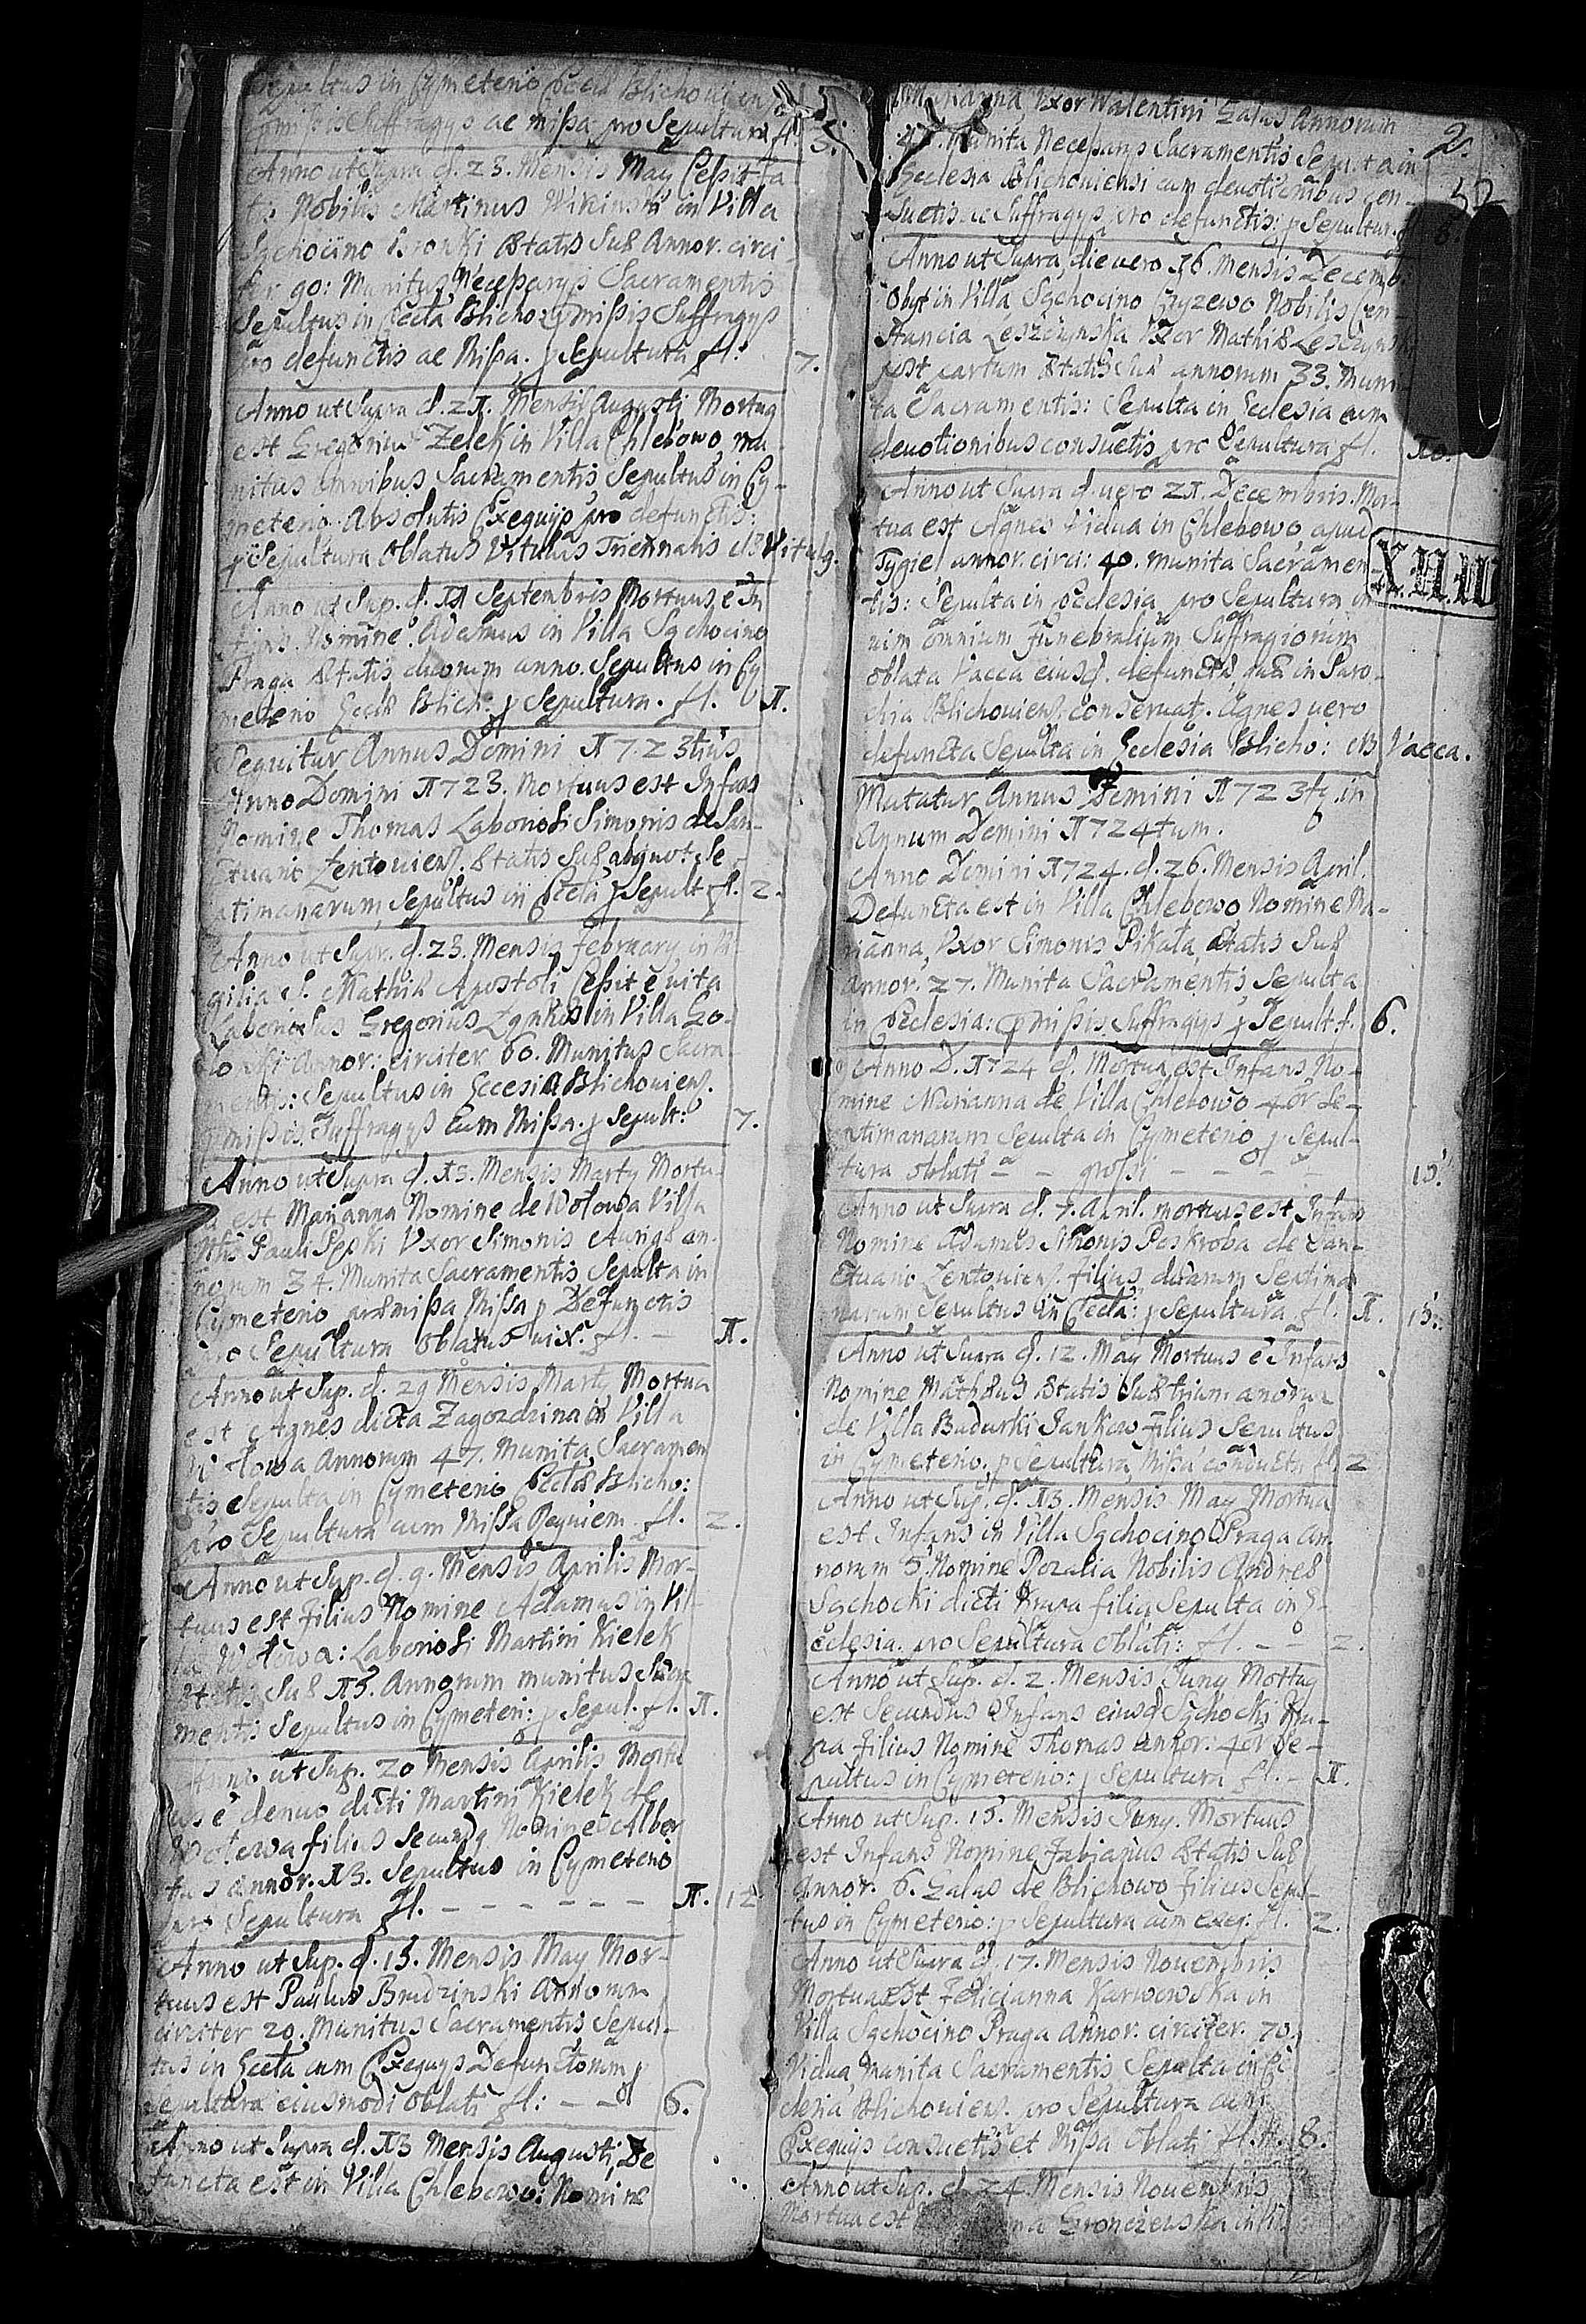 Sepultus in Cymeterio Eccae Blichoviens
pmißis Suffragys ac mißa pro Sepultura fl. 5.
Anno ut Supra d. 23. Mensis May Ceßit fa
tis Nobilis Martinus Wikinski in Villa
Sąchocino Bronki AEtatis Suae Annor. circi
ter 90: Munitus Neceßarys Sacramentis
Sepultus in Eccla Blicho: pmißis Suffragys
pro defunctis ac Mißa. p Sepultura fl: 7.
Anno ut Supra d. 21. Mensis Augusti Mortuq
est Gregorius Zelek in Villa Chlebowo, mu
nitus omnibus Sacramentis Sepultus in Cy-
meterio. Absolutis Exequys pro defunctis:
p Sepultura oblatus Vitulus Triennalis dB Vitulg.
Anno ut Sup. d. 11 Septembris Mortuus e In
fans Nomine Adamus in Villa Sąchocino
Praga AEtatis duorum anno. Sepultus in Cy
meterio Eccae Blich: p Sepultura. fl. 1.
Sequitur Annus Domini 1723tius
Anno Domini 1723. Mortuus est Infans
Nomine Thomas Laboriosi Simonis de San-
ctuario Zentoviens. AEtatis Suae aliquot Se
ptimanarum, Sepultus in Eccla p Sepult fl. 2.
Anno ut Supr. d. 23. Mensis February in Vi
gilia S. Mathiae Apostoli Ceßit e vita
Laboriosus Gregorius Zęnkos in Villa Go-
Annor: circiter 60. Munitus Sacra
mentis: Sepultus in Eccesia Blichoviens.
pmißis Suffragys cum Mißa. p Sepult: 7.
Anno ut Supra d. 15. Mensis Marty Mortu
a est Marianna Nomine de Wołowa Villa
Pauli Sępski Uxor Simonis Aurigae an-
norum 34. Munita Sacramentis Sepulta in
Cymeterio praemißa Mißa p Defunctis
pro Sepultura oblatus vix. fl. - 1.
Anno ut Sup. d. 29 Mensis Marty Mortua
est Agnes dicta Zagozdzina in Villa
Wołowa, Annorum 47. Munita Sacramen
tis Sepulta in Cymeterio Eccae Blicho:
pro Sepultura cum Mißa Requiem fl. 2.
Anno ut Sup. d. 9. Mensis Aprilis Mor-
tuus est Filius Nomine Adamus in Vil-
la Wołowa: Laboriosi Martini Kielek
AEtatis Suae 15. Annorum munitus Sacra
menti: Sepultus in Cymeteri: p Sepul. fl. 1.
Anno ut Sup. 20 Mensis Aprilis Mortu
us e denuo dicti Martini Kielek de
Wołowa filius Secundq Nomine Alber
tus annor. 13. Sepultus in Cymeterio
pro Sepultura fl. - - - - - - 1. 12
Anno ut Sup. d. 15. Mensis May Mor-
tuus est Paulus Brudzinski Annorum
circiter 20. Munitus Sacramentis Sepul-
tus in Eccla cum Exequys Defunctorum p
Sepultura eiusmodi oblati fl: - - 6.
Anno ut Supra d. 13 Mensis Augusti, De
functa est in Villa Chlebowo: Nomine
Marianna, Uxor Walentini Załas Annorum 2.
47. Munita Neceßarys Sacramentis Sepulta in
Ecclesia Blichoviensi cum devotionibus con-
suetis ac Suffragys pro defunctis: p Sepultur. fl 8. 52
Anno ut Supra, die vero 16. Mensis Decemb:
Obyt in Villa Sąchocino Gryzewo Nobilis Con-
stancia Leszczynska Uxor Mathiae Leszczynski
post partum AEtatis Suae annorum 33. Muni
ta Sacramentis: Sepulta in Ecclesia cum
devotionibus consuetis pro Sepultura fl. 10.
Anno ut Supra d. vero 21. Decembris. Mor-
tua est Agnes Vidua in Chlebowo, apud
Tygie, annor. circi: 40. munita Sacramen-
tis: Sepulta in Ecclesia, pro Sepultura in
vim omnium funebralium Suffragiorum
oblata Vacca eiusd. defunctae, quae in Paro-
chia Blichoviens. conservat. Agnes vero
defuncta Sepulta in Ecclesia Blicho: dB Vacca.
Mutatur Annus Domini 1723tq in
Annum Domini 1724tum.
Anno Domini 1724. d. 26. Mensis April.
Defuncta est in Villa Chlebowo Nomine Ma-
rianna, Uxor Simonis Pikala, AEtatis Suae
Annor. 27. Munita Sacramentis Sepulta
in Ecclesia: pmißis Suffragys p Sepult. f. 6.
Anno D. 1724 d. Mortua est Infans No-
mine Marianna de Villa Chlebowo 4or Se-
ptimanarum Sepulta in Cymeterio p Sepul-
tura oblati - - großi - - - - 15.
Anno ut Supra d. 7. April. mortuus est Infans
Nomine Adamus Simonis Poskroba de San-
ctuario Zentoviens. filius, duarum Septima
narum, Sepultus in Eccla: p Sepultura fl. 1. 15.
Anno ut Supra d. 12. May Mortuus e Infans
Nomine Mathaeus AEtatis Suae trium anorum
de Villa Budurki Jankow Filius Sepultus
in Cymeterio. p Sepultura, Mißa conducta fl. 2
Anno ut Sup. d. 13. Mensis May Mortua
est Infans in Villa Sąchocino Praga An
norum 5. Nomine Rozalia Nobilis Andreae
Sąchocki dicti Krupa filia Sepulta in E-
cclesia. pro Sepultura oblati: fl. - - 2.
Anno ut Sup. d. 2. Mensis Juny Mortuq
est Secundus Infans eiusd Sąchocki Kru-
pa filius Nomine Thomas annor: 4or Se-
pultus in Cymeterio: p Sepultura fl. - 1.
Anno ut Sup. 15. Mensis Juny. Mortuus
est Infans Nomine Fabianus AEtatis Suae
Annor. 6. Załas de Blichowo Filius Sepul-
tus in Cymeterio: p Sepultura cum exeq: fl. 2.
Anno ut Supra d. 17. Mensis Novembris
Mortua est Felicianna Karwowska in
Villa Sąchocino Praga Annor. circiter. 70.
Vidua, Munita Sacramentis Sepulta in Ec
clesia Blichoviens. pro Sepultura cum
Exequys consuetis et Mißa oblati fl. 8.
Anno ut Sup. d. 24. Mensis Novembris
Mortua est